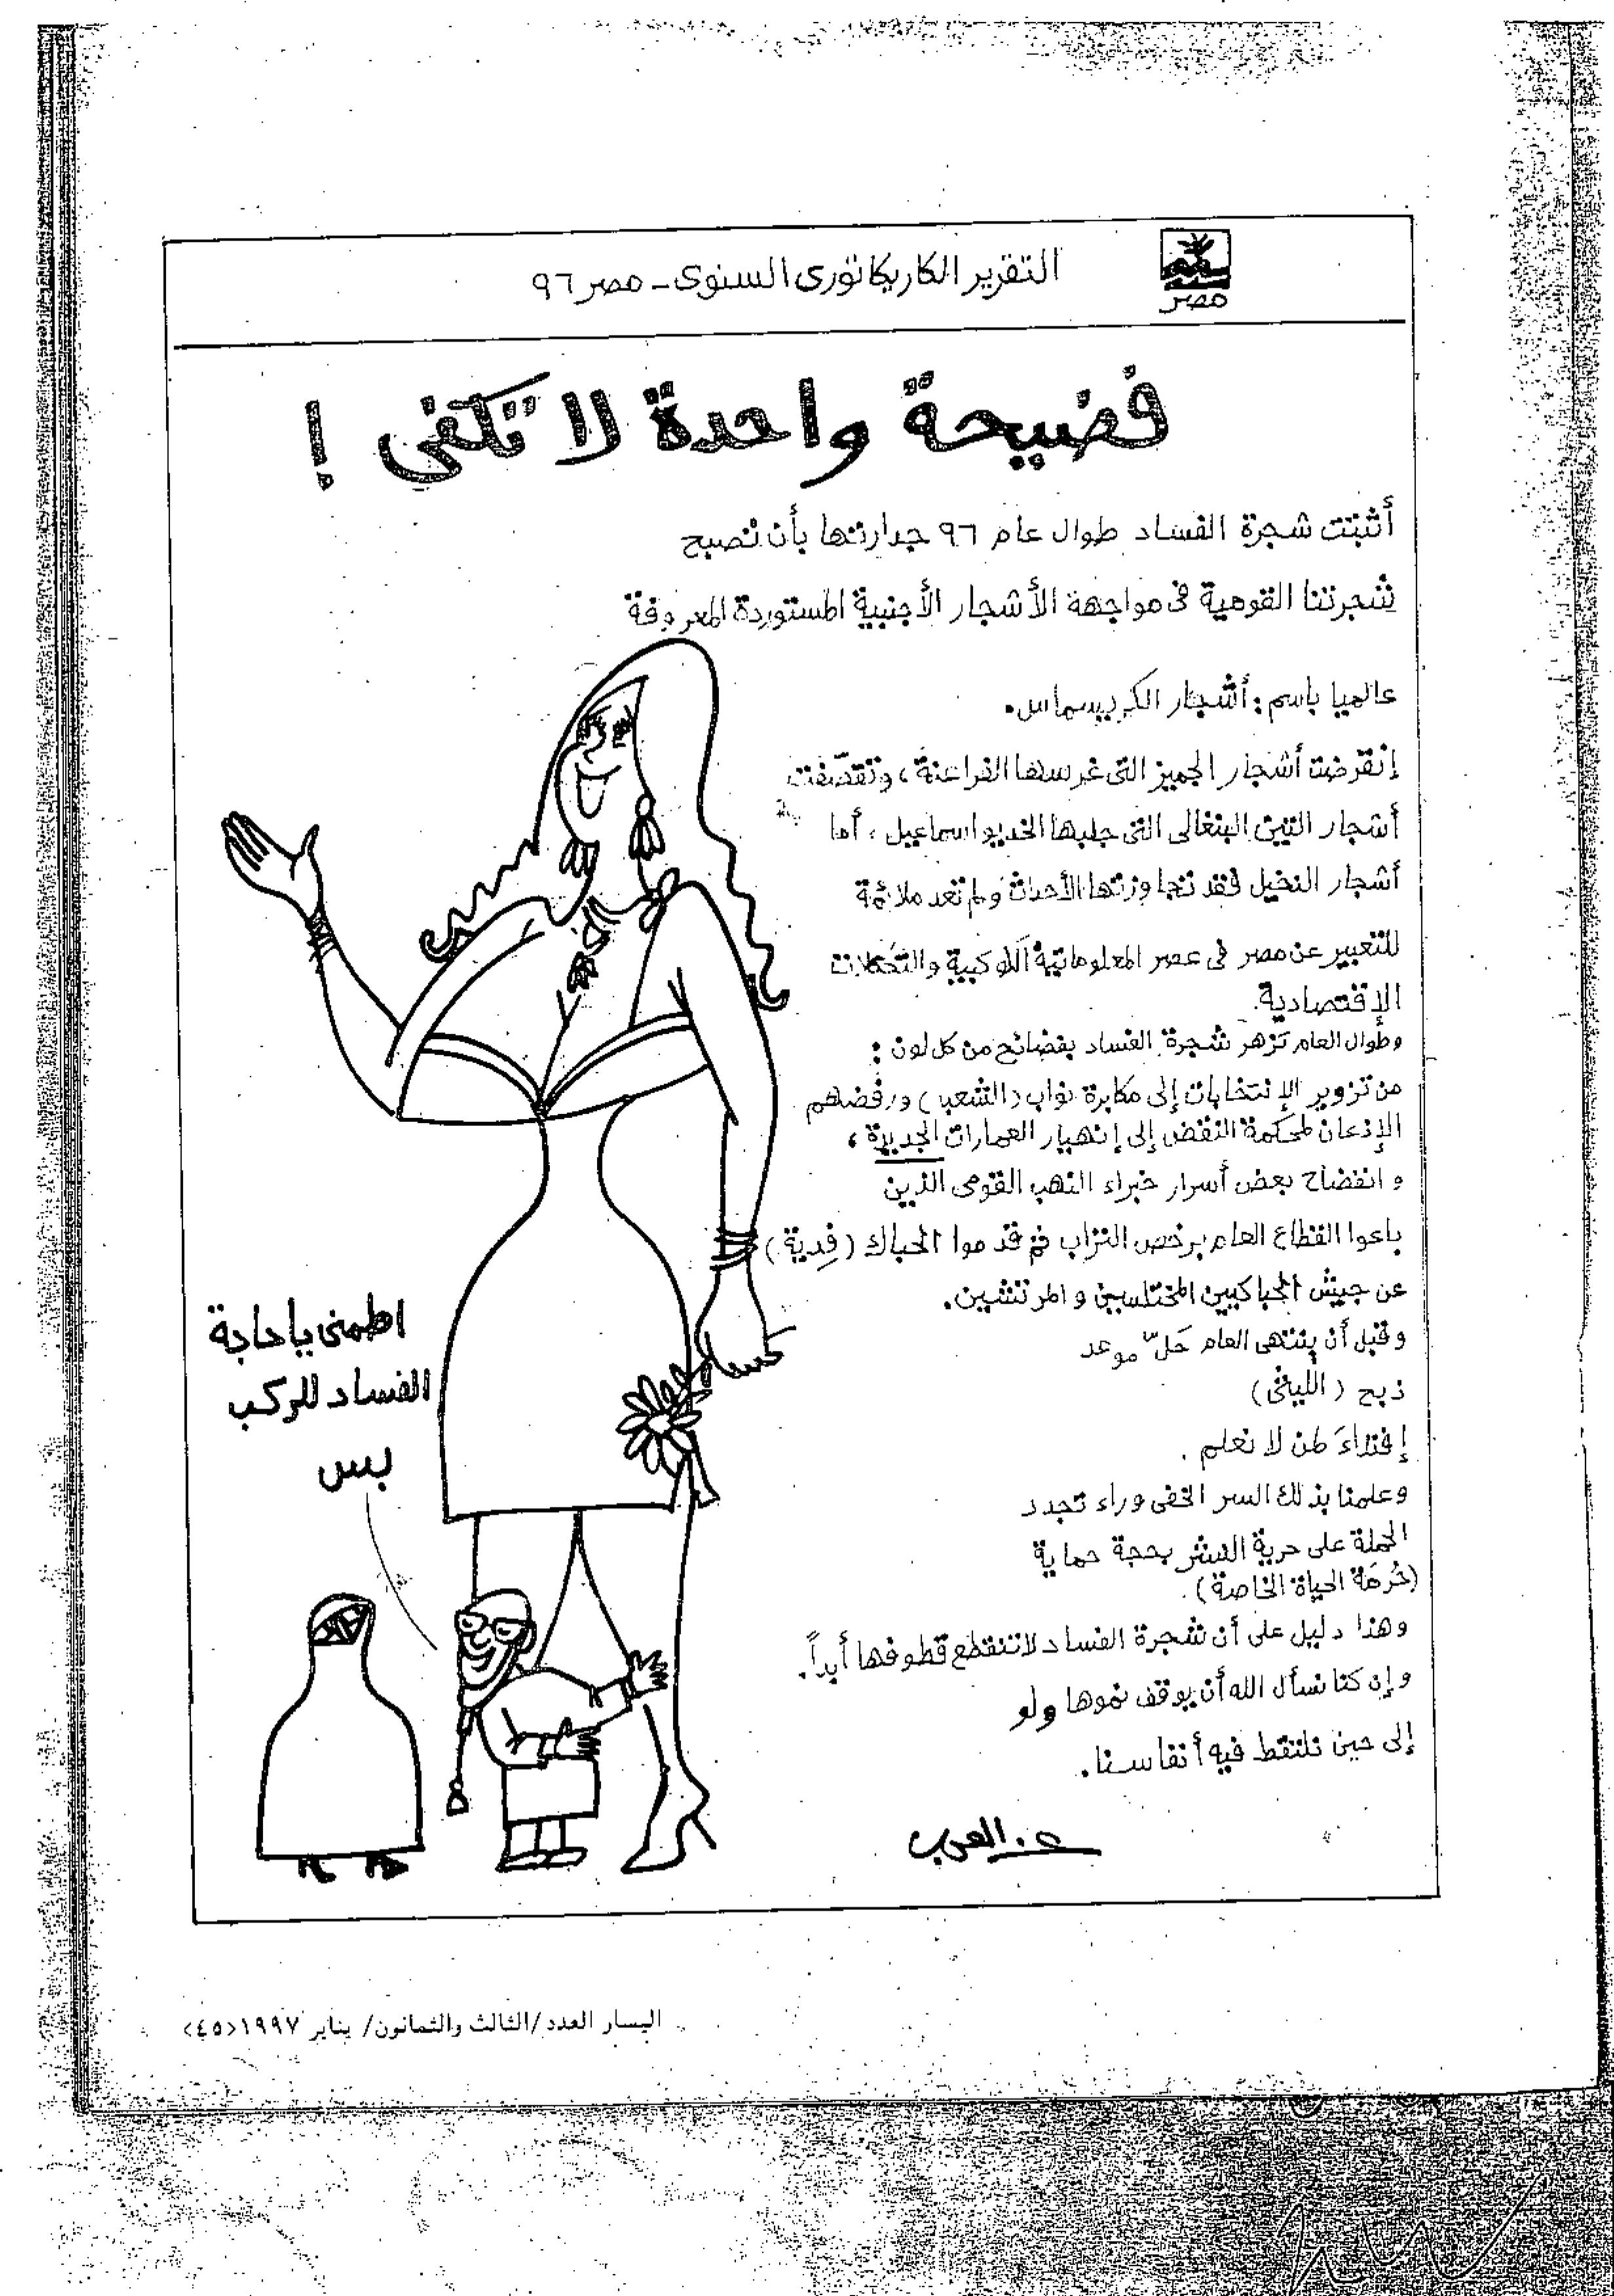 مصر
التقرير الكاريكاتورى السنوى - مصر ٩٦
فضيحة واحدة لا تكفى !
أثبتت شجرة الفساد طوال عام ٩٦ جدارتها بأن تصبح
شجرتنا القومية فى مواجهة الأشجار الأجنبية المستوردة المعروفة
عالميا باسم : أشجار الكريسماس.
إنقرضت أشجار الجميز التى غرسها الفراعنة ، وتقصّفت
أشجار التين البنغالى التى جلبها الخديو اسماعيل ، أما
أشجار النخيل فقد تجاوزتها الأحداث ولم تعد ملائمة
للتعبير عن مصر فى عصر المعلوماتية الكوكبية والتكتلات
الإقتصادية.
وطوال العام تزهر شجرة الفساد بفضائح من كل لون :
من تزوير الإنتخابات إلى مكابرة نواب (الشعب) ورفضهم
الإذعان لمحكمة النقض إلى إنهيار العمارات الجديدة ،
و انفضاح بعض أسرار خبراء النهب القومى الذين
باعوا القطاع العام برخص التراب ثم قدموا الحباك (فِدية)
عن جيش الحباكيين المختلسين و المرتشين.
وقبل أن ينتهى العام حَلّ موعد
ذبح (الليثى)
إفتداءً لمن لا نعلم .
وعلمنا بذلك السر الخفى وراء تجدد
الحملة على حرية النشر بحجة حماية
(حُرمَة الحياة الخاصة).
وهذا دليل على أن شجرة الفساد لا تنقطع قطوفها أبداً.
وإن كنا نسأل الله أن يوقف نموها ولو
إلى حين نلتقط فيه أنفاسنا.
اطمنى يا حاجة
الفساد للركب
بس
عز العرب
اليسار العدد/الثالث والثمانون/ يناير ١٩٩٧<٤٥>